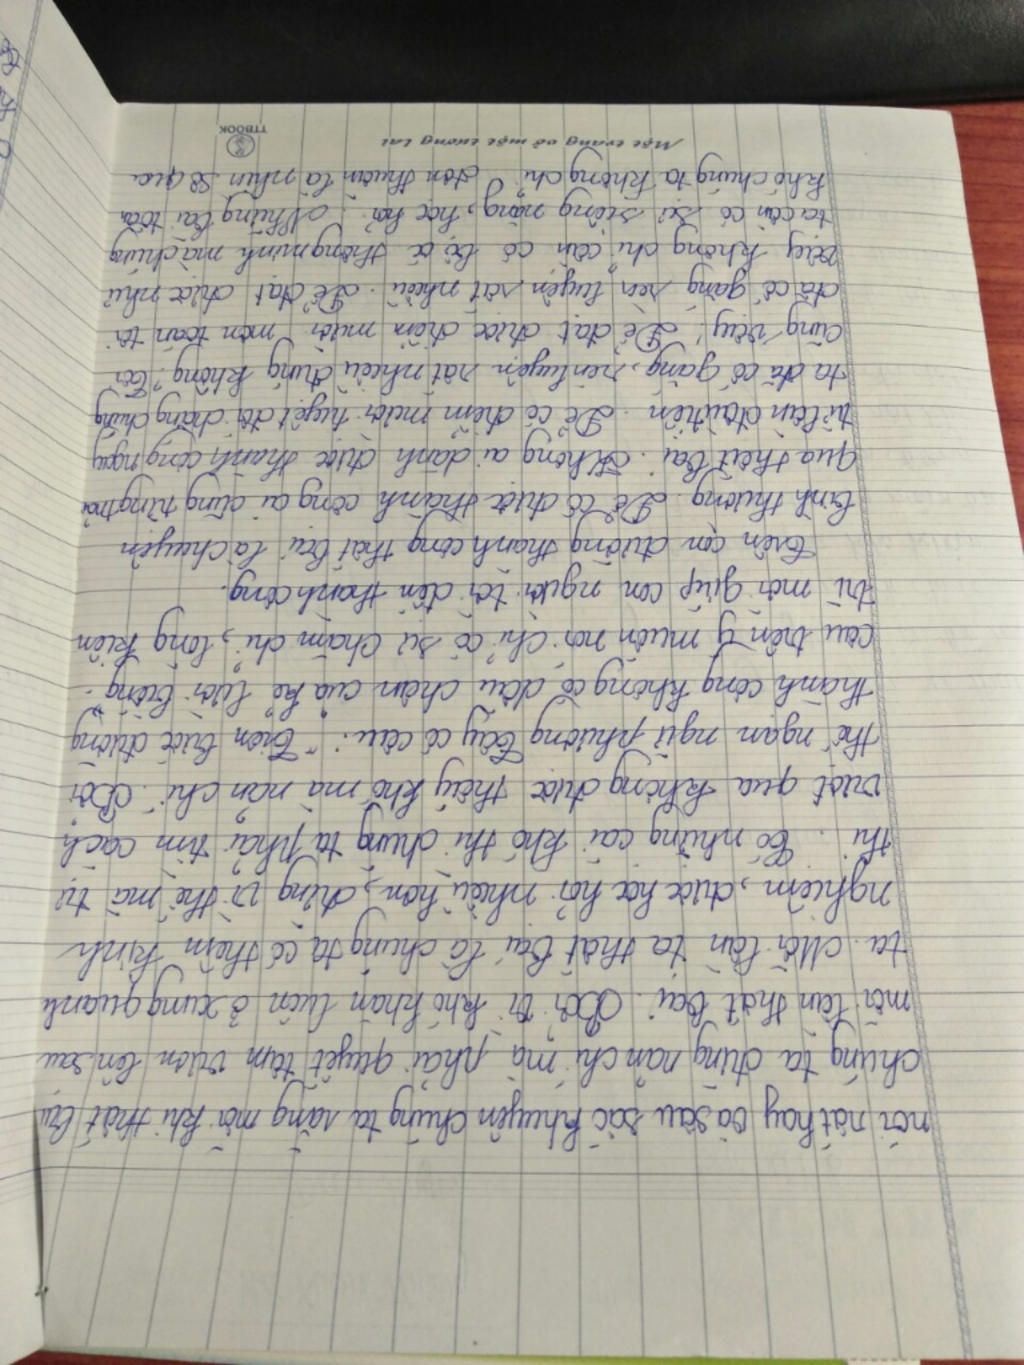 nói rất hay và sâu sắc khuyên chúng ta rằng mỗi khi thất bại
chúng ta đừng nản chí mà phải quyết tâm vươn lên sau
mỗi lần thất bại. Bởi vì khó khăn luôn ở xung quanh
ta. Mỗi lần ta thất bại là chúng ta có thêm kinh
nghiệm, được học hỏi nhiều hơn, đừng vì thế mà tự
ti. Có những cái khó thì chúng ta phải tìm cách
vượt qua không được thấy khó mà nản chí. Bởi
thế ngạn ngữ phương Tây có câu: "Trên bước đường
thành công không có dấu chân của kẻ lười biếng".
câu trên ý muốn nói chỉ có sự chăm chỉ, lòng kiên
trì mới giúp con người tới đến thành công.
Trên con đường thành công thất bại là chuyện
bình thường. Để có được thành công ai cũng từng trải
qua thất bại. Không ai dành được thành công ngay
từ lần đầu tiên. Để có điểm mười tuyệt đối chẳng chúng
ta đã cố gắng, rèn luyện rất nhiều đúng không? Tôi
cũng vậy! Để đạt được điểm mười môn toán tôi
đã cố gắng rèn luyện rất nhiều. Để đạt được như
vậy không chỉ cần có bộ óc thông minh mà chúng
ta còn có sự siêng năng, học hỏi. Những bài toán
khó chúng ta không chỉ đơn thuần là nhìn sơ qua
Một trang vở một tương lai
TTBOOK